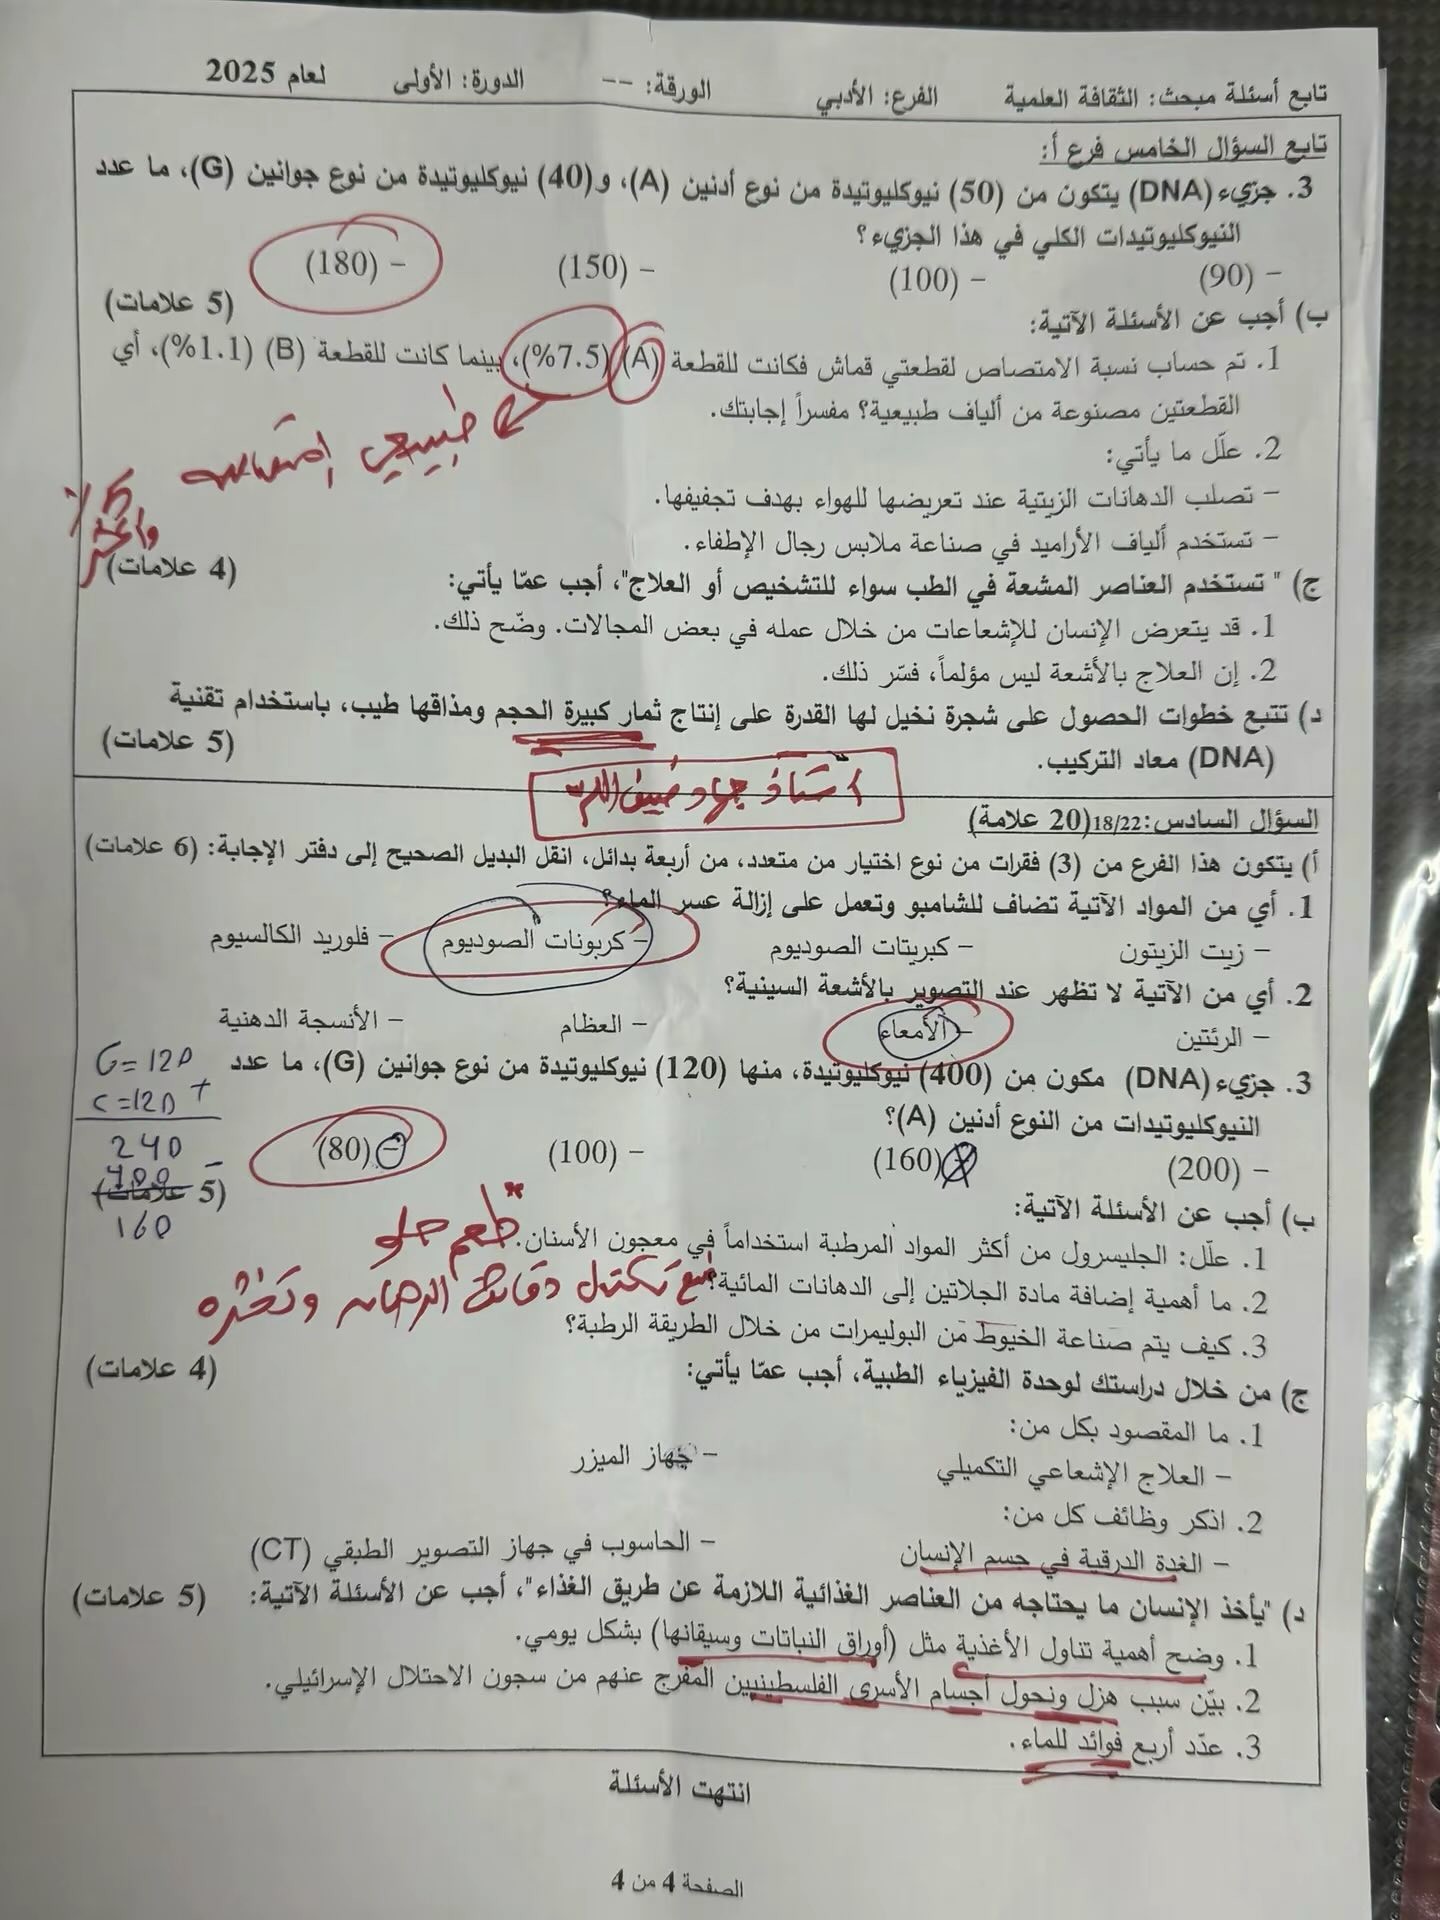 تابع أسئلة مبحث: الثقافة العلمية الفرع: الأدبي الورقة: -- الدورة: الأولى لعام 2025
تابع السؤال الخامس فرع أ:
3. جزيء (DNA) يتكون من (50) نيوكليوتيدة من نوع أدنين (A)، و(40) نيوكليوتيدة من نوع جوانين (G)، ما عدد
النيوكليوتيدات الكلي في هذا الجزيء؟
- (90) - (100) - (150) - (180)
ب) أجب عن الأسئلة الآتية: (5 علامات)
1. تم حساب نسبة الامتصاص لقطعتي قماش فكانت للقطعة (A) (7.5%)، بينما كانت للقطعة (B) (1.1%)، أي
القطعتين مصنوعة من ألياف طبيعية؟ مفسراً إجابتك.
طبيعي امتصاصه
5%
واكثر
2. علّل ما يأتي:
- تصلب الدهانات الزيتية عند تعريضها للهواء بهدف تجفيفها.
- تستخدم ألياف الأراميد في صناعة ملابس رجال الإطفاء.
ج) " تستخدم العناصر المشعة في الطب سواء للتشخيص أو العلاج"، أجب عمّا يأتي: (4 علامات)
1. قد يتعرض الإنسان للإشعاعات من خلال عمله في بعض المجالات. وضّح ذلك.
2. إن العلاج بالأشعة ليس مؤلماً، فسّر ذلك.
د) تتبع خطوات الحصول على شجرة نخيل لها القدرة على إنتاج ثمار كبيرة الحجم ومذاقها طيب، باستخدام تقنية
(DNA) معاد التركيب. (5 علامات)
أستاذ جهاد ضيف الله
السؤال السادس:18/22(20 علامة)
أ) يتكون هذا الفرع من (3) فقرات من نوع اختيار من متعدد، من أربعة بدائل، انقل البديل الصحيح إلى دفتر الإجابة: (6 علامات)
1. أي من المواد الآتية تضاف للشامبو وتعمل على إزالة عسر الماء؟
- زيت الزيتون - كبريتات الصوديوم - كربونات الصوديوم - فلوريد الكالسيوم
2. أي من الآتية لا تظهر عند التصوير بالأشعة السينية؟
- الرئتين - الأمعاء - العظام - الأنسجة الدهنية
3. جزيء (DNA) مكون من (400) نيوكليوتيدة، منها (120) نيوكليوتيدة من نوع جوانين (G)، ما عدد
النيوكليوتيدات من النوع أدنين (A)؟
- (200) - (160) - (100) - (80)
G=120
C=120 +
240
400 -
160
ب) أجب عن الأسئلة الآتية: (5 علامات)
1. علّل: الجليسرول من أكثر المواد المرطبة استخداماً في معجون الأسنان.
طعم حلو
2. ما أهمية إضافة مادة الجلاتين إلى الدهانات المائية؟
منع تكتل دقائق الدهان وتخثره
3. كيف يتم صناعة الخيوط من البوليمرات من خلال الطريقة الرطبة؟
ج) من خلال دراستك لوحدة الفيزياء الطبية، أجب عمّا يأتي: (4 علامات)
1. ما المقصود بكل من:
- العلاج الإشعاعي التكميلي - جهاز الميزر
2. اذكر وظائف كل من:
- الغدة الدرقية في جسم الإنسان - الحاسوب في جهاز التصوير الطبقي (CT)
د) "يأخذ الإنسان ما يحتاجه من العناصر الغذائية اللازمة عن طريق الغذاء"، أجب عن الأسئلة الآتية: (5 علامات)
1. وضح أهمية تناول الأغذية مثل (أوراق النباتات وسيقانها) بشكل يومي.
2. بيّن سبب هزل ونحول أجسام الأسرى الفلسطينيين المفرج عنهم من سجون الاحتلال الإسرائيلي.
3. عدّد أربع فوائد للماء.
انتهت الأسئلة
الصفحة 4 من 4